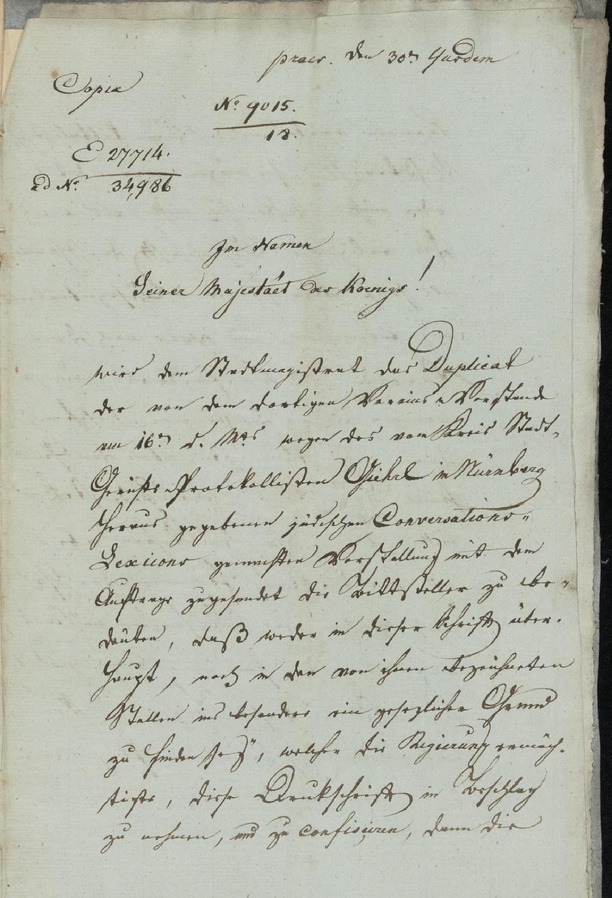 praes. den 30n
Copia
No. 9015.
18.
E 27714.
ad No. 34,986
Im Namen
Seiner Majestaet des Koenigs!
wird dem Stadtmagistrat das Duplicat
der von dem dortigen Vereins-Vorstande
am 16n d. Mts wegen des vom Kreis Stadt-
Gerichts-Protokollisten Giehrl in Nürnberg
heraus gegebenen jüdischen Conversations-
Lexicons gemachten Vorstellung mit dem
Auftrage zugesendet die Bittsteller zu be-
deuten, daß weder in dieser Schrift über-
haupt, noch in den von ihnen bezeichneten
Stellen ins besondere ein gesezlicher Grund
zu finden sey, welcher die Regierung ermäch-
tigte, diese Drukschrift in Beschlag
zu nehmen, und zu confisciren, denn die